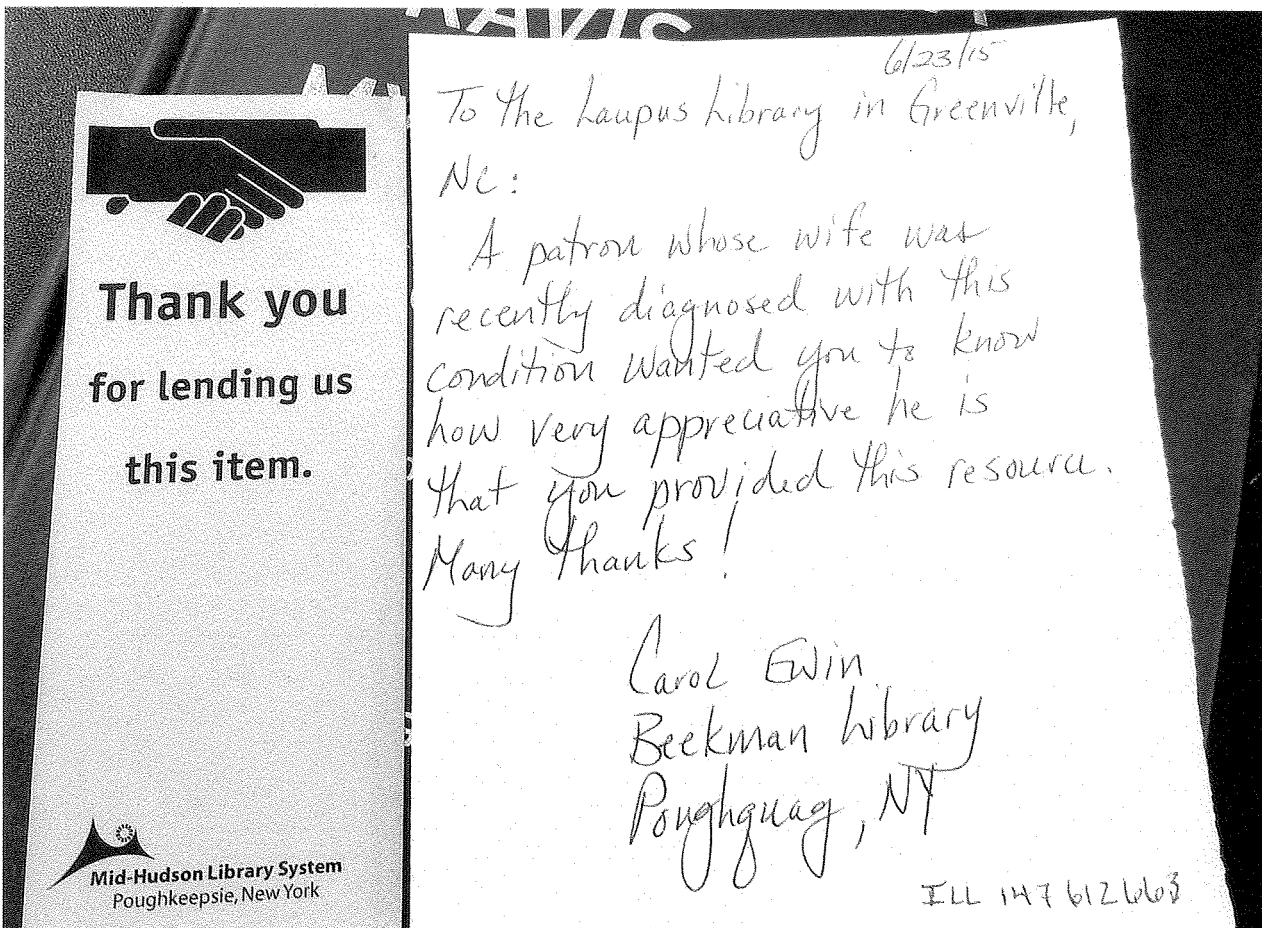 Thank you
for lending us
this item.
Mid-Hudson Library System
Poughkeepsie, New York
6/23/15
To the Laupus Library in Greenville,
NC:
A patron whose wife was
recently diagnosed with this
condition wanted you to know
how very appreciative he is
that you provided this resource.
Many thanks!
Carol Ewin
Beekman Library
Poughquag, NY
ILL 147612663